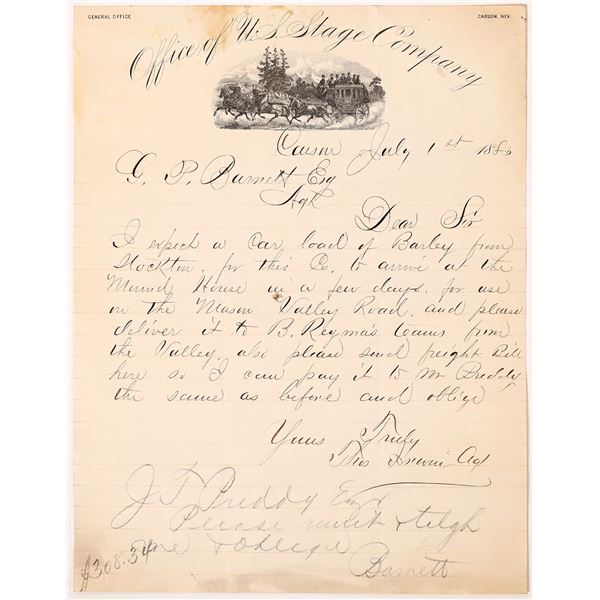 GENERAL OFFICE
CARSON, NEV.
Office of U.S. Stage Company
Carson July 1st 1880
G. P. Barnett Esq
Agt
Dear Sir
I expect a Car load of Barley from
Stockton, for this Co. to arrive at the
Mound House in a few days. for use
on the Mason Valley Road. and please
deliver it to B. Reymas teams from
the Valley. also please send freight Bill
here so I can pay it to Mr Buddy
the same as before and oblige
Yours Truly
Thos Agt
J T Puddy Esqr
Please remit & telgh
me & oblige
Barnett
$308.34